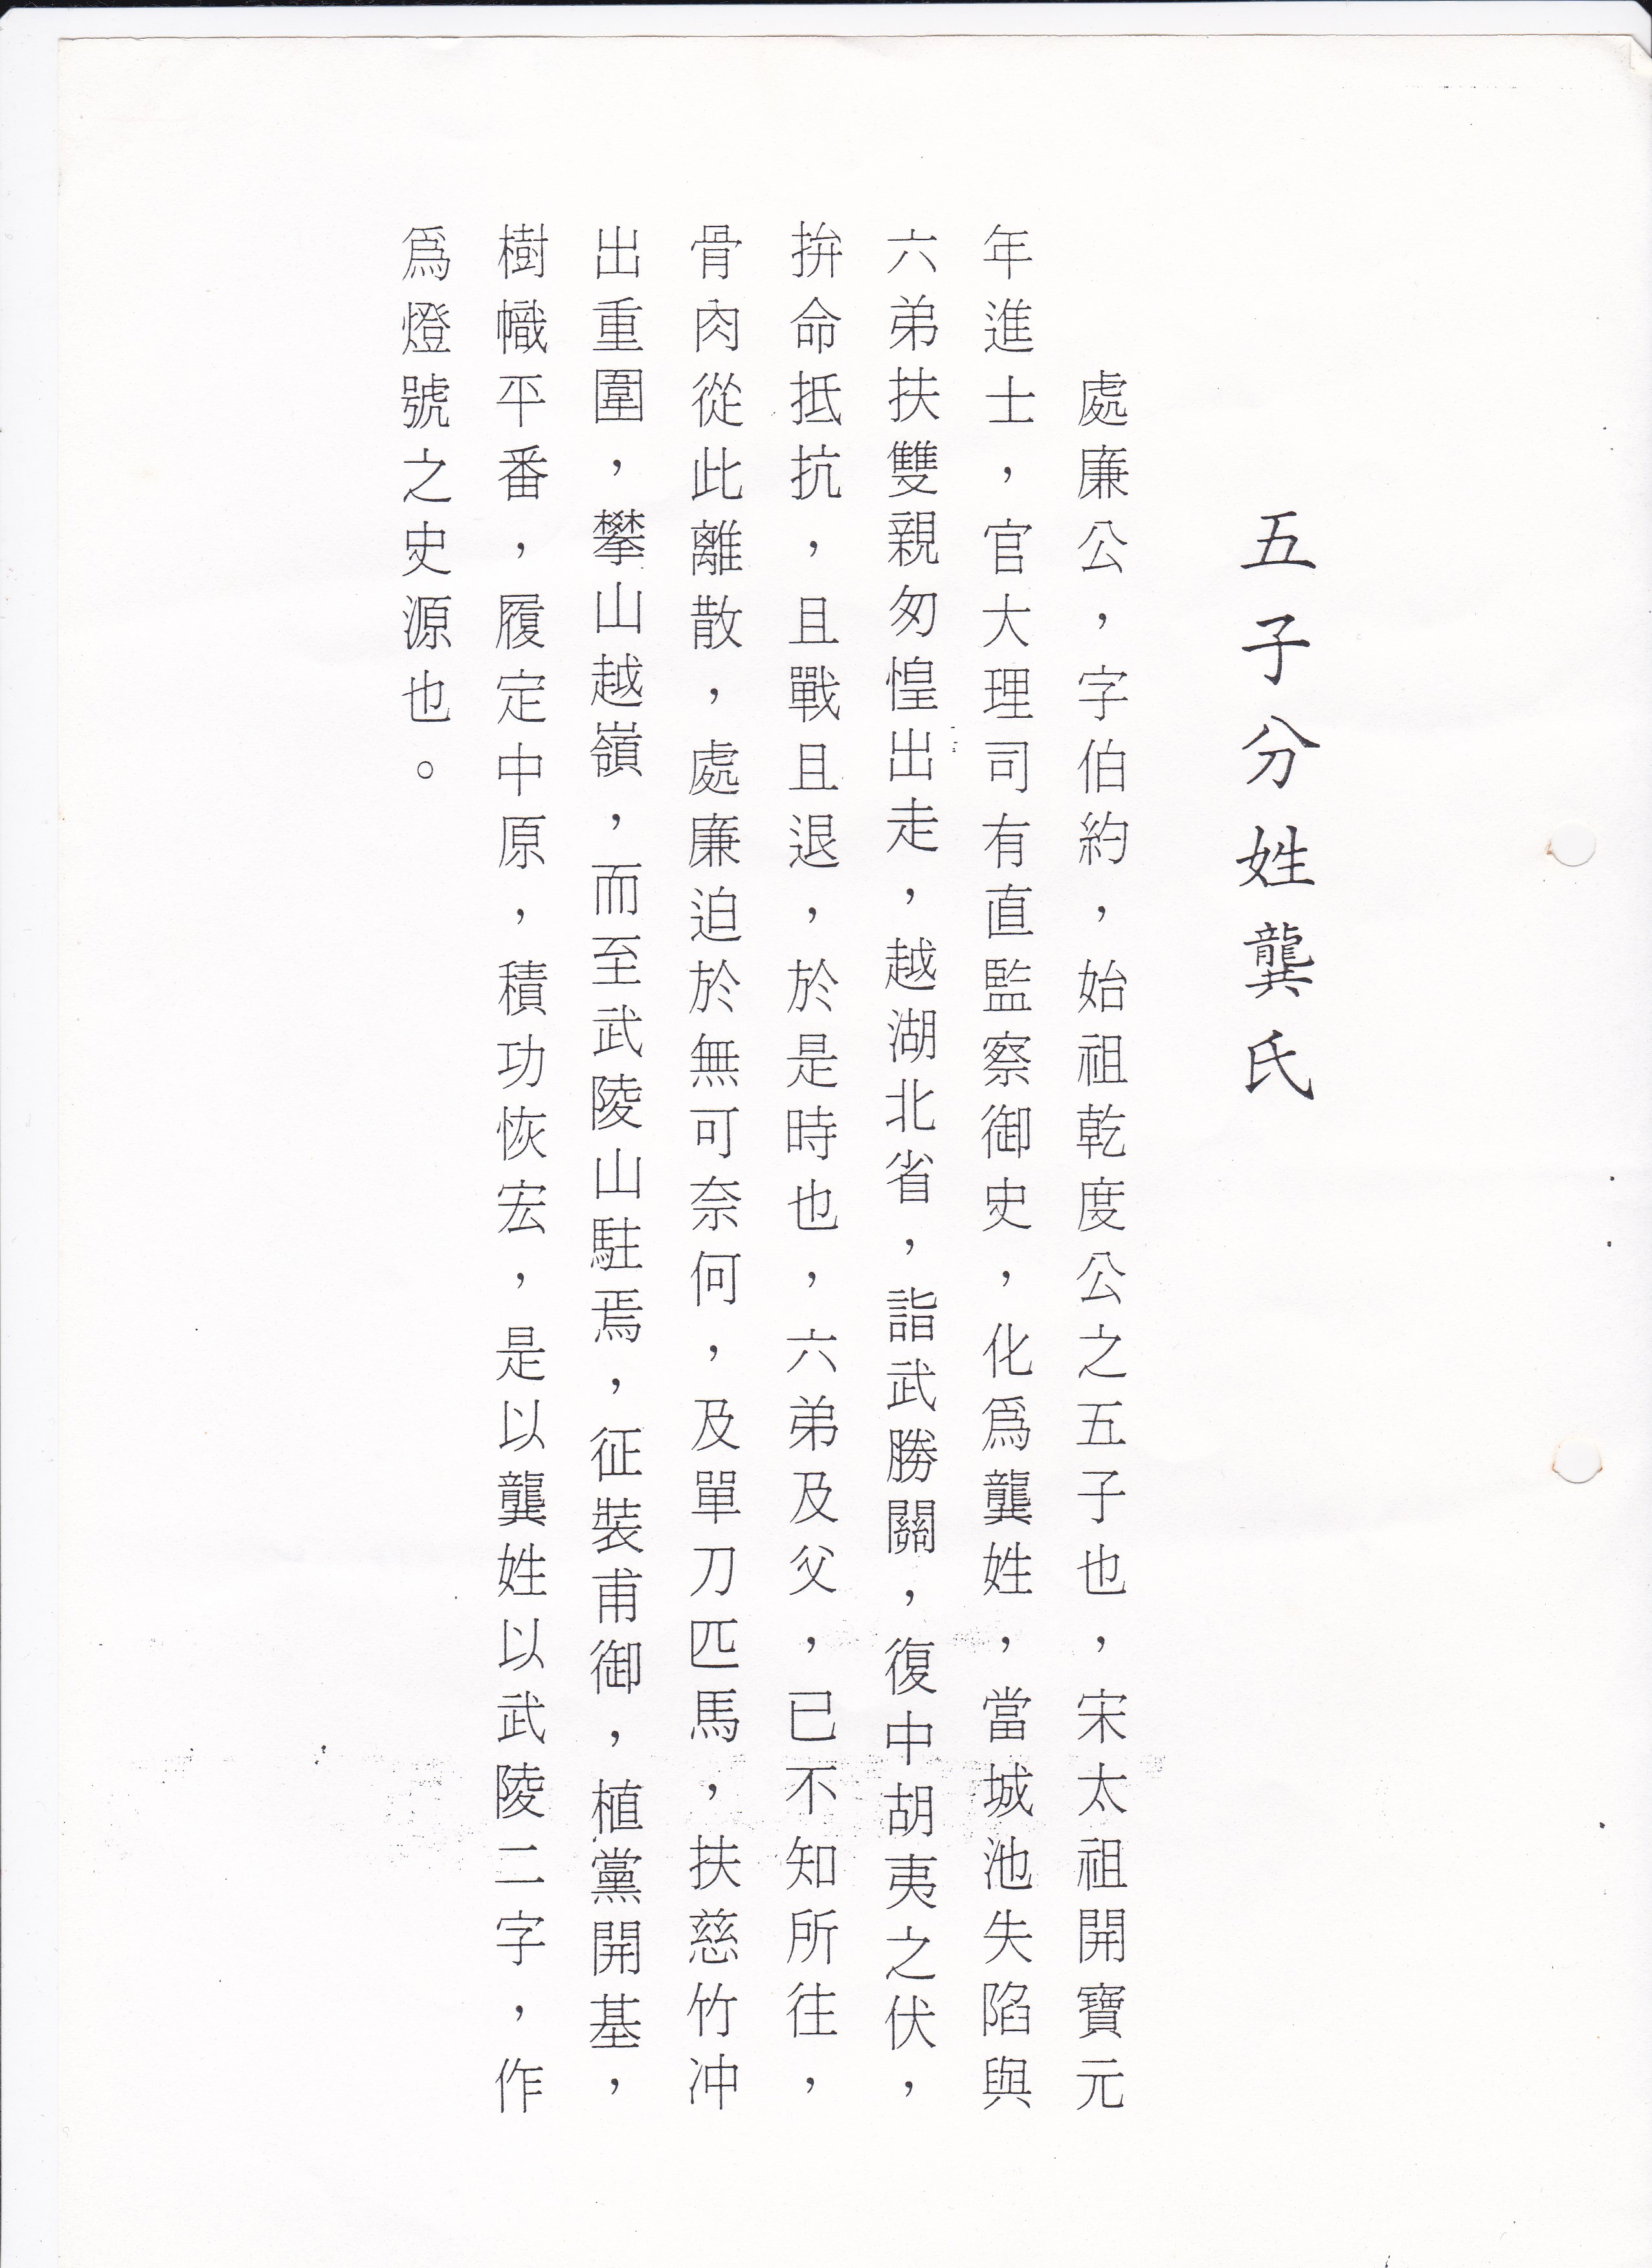 五子分姓龔氏
處廉公，字伯約，始祖乾度公之五子也，宋太祖開寶元
年進士，官大理司有直監察御史，化爲龔姓，當城池失陷與
六弟扶雙親匆惶出走，越湖北省，詣武勝關，復中胡夷之伏，
拚命抵抗，且戰且退，於是時也，六弟及父，已不知所往，
骨肉從此離散，處廉迫於無可奈何，及單刀匹馬，扶慈竹冲
出重圍，攀山越嶺，而至武陵山駐焉，征裝甫御，植黨開基，
樹幟平番，履定中原，積功恢宏，是以龔姓以武陵二字，作
爲燈號之史源也。